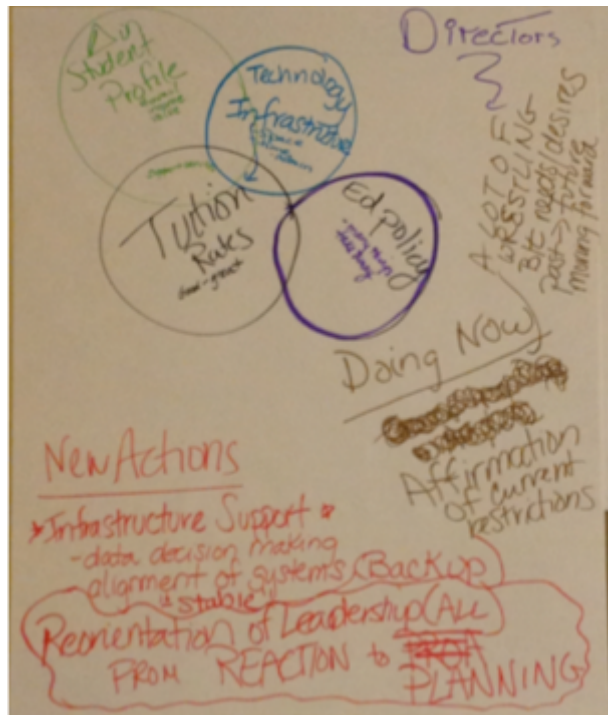 Directors
Δ in
Student
Profile
Technology
Infrastructure
Tution
Rules
Ed policy
A LOT OF
WRESTLING
Btw needs/desires
past → future
moving forward
Doing Now
Affirmation
of current
restrictions
New Actions
* Infrastructure Support *
- data decision making
alignment of systems (Backup
"stable"
Reorientation of Leadership (ALL
FROM REACTION to
PLANNING